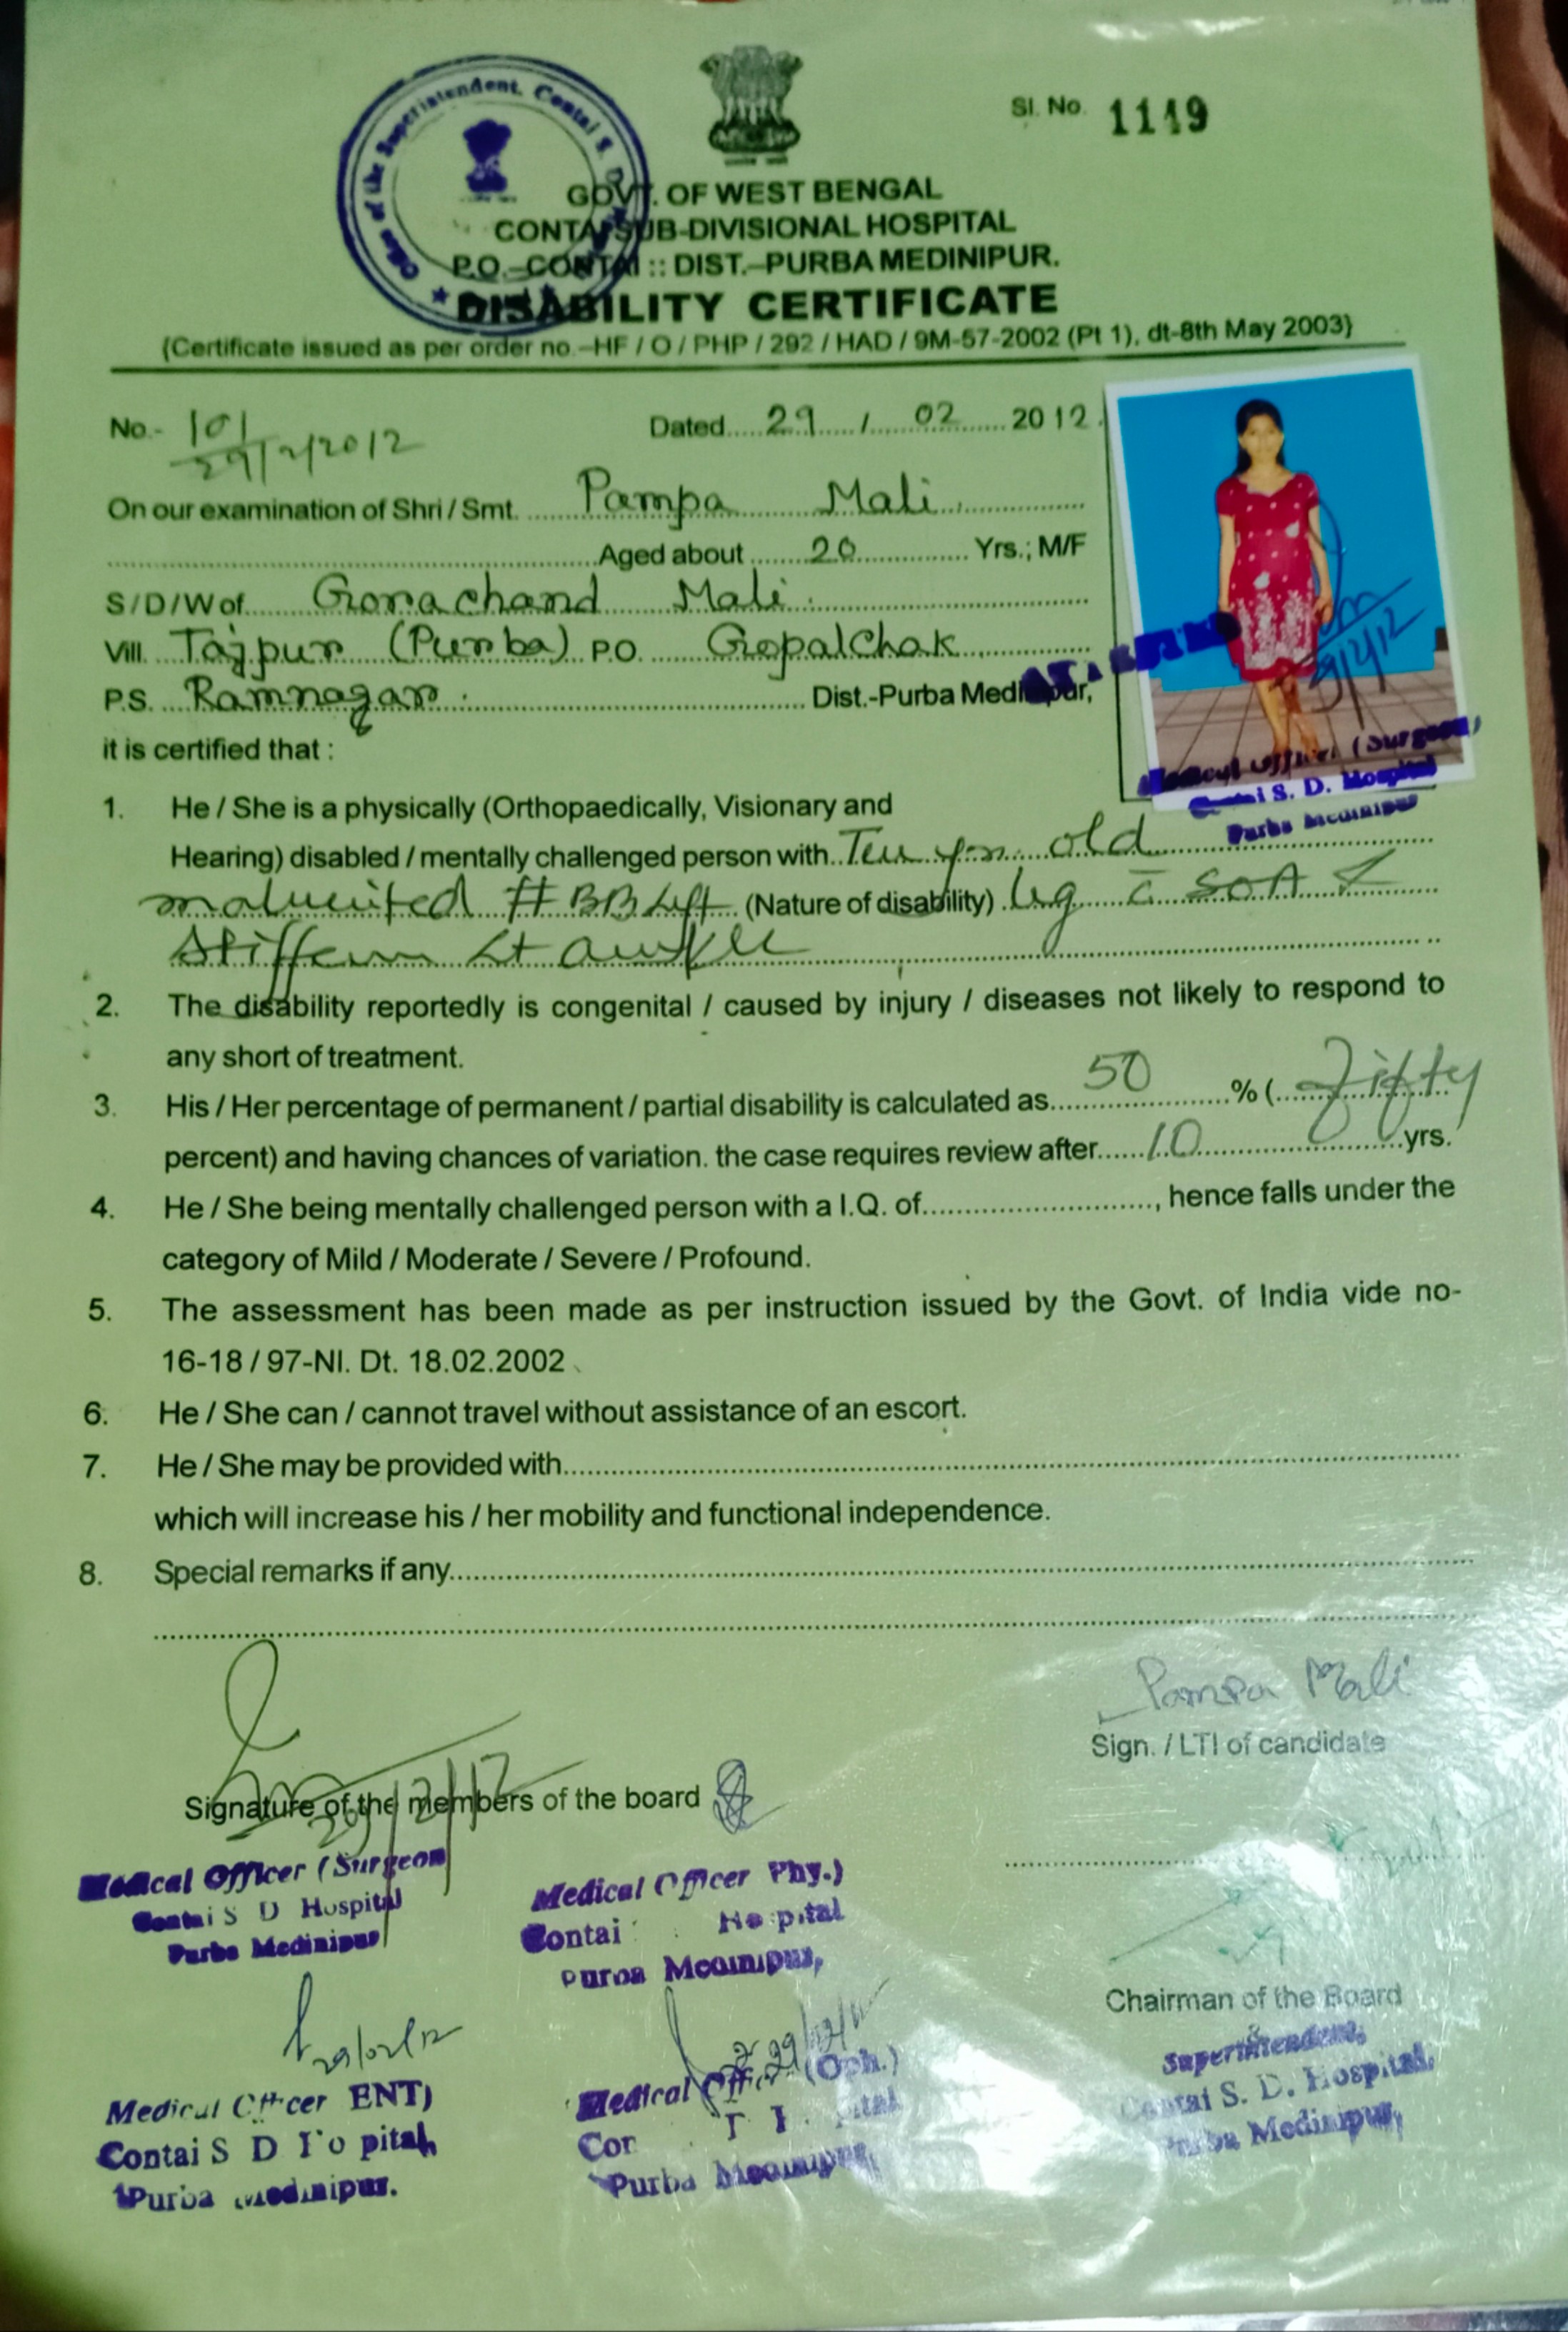 Sl. No. 1149
Office of the Superintendent, Contai S. D.
GOVT. OF WEST BENGAL
CONTAI SUB-DIVISIONAL HOSPITAL
P.O.–CONTAI :: DIST.–PURBA MEDINIPUR.
DISABILITY CERTIFICATE
(Certificate issued as per order no.–HF / O / PHP / 292 / HAD / 9M-57-2002 (Pt 1), dt-8th May 2003)
No.- 101 Dated.....29...../.....02.....2012.
29/2/2012
On our examination of Shri / Smt. Pampa Mali
Aged about 20 Yrs.; M/F
S / D / W of Gorachand Mali
Vill. Tajpur (Purba) P.O. Gopalchak
P.S. Ramnagar Dist.-Purba Medinipur,
ATTESTED
29/2/12
Medical Officer (Surgeon)
Contai S. D. Hospital
Purba Medinipur
it is certified that :
1. He / She is a physically (Orthopaedically, Visionary and
Hearing) disabled / mentally challenged person with Ten yrs. old
malunited # BB Left (Nature of disability) leg
Lt ankle
2. The disability reportedly is congenital / caused by injury / diseases not likely to respond to
any short of treatment.
3. His / Her percentage of permanent / partial disability is calculated as 50 % ( Fifty
percent) and having chances of variation. the case requires review after 10 yrs.
4. He / She being mentally challenged person with a I.Q. of............................, hence falls under the
category of Mild / Moderate / Severe / Profound.
5. The assessment has been made as per instruction issued by the Govt. of India vide no-
16-18 / 97-NI. Dt. 18.02.2002
6. He / She can / cannot travel without assistance of an escort.
7. He / She may be provided with
which will increase his / her mobility and functional independence.
8. Special remarks if any
Pampa Mali
Sign. / LTI of candidate
29/2/12
Signature of the members of the board
Medical Officer (Surgeon
Contai S D Hospital
Purba Medinipur
Medical Officer Phy.)
Contai Hospital
Purba Medinipur,
Chairman of the Board
Superintendent,
Contai S. D. Hospital,
Purba Medinipur,
29/02/12
Medical Officer ENT)
Contai S D Hospital,
Purba Medinipur.
Medical Officer (Oph.)
Purba Medinipur,